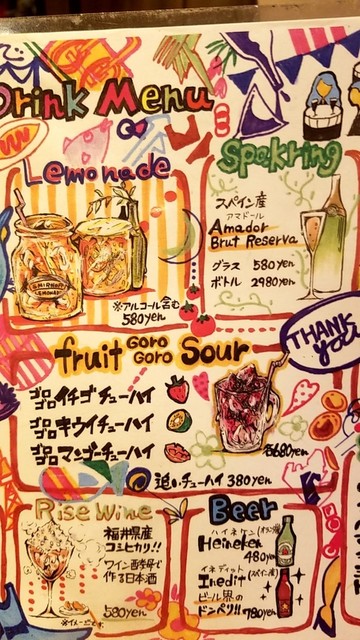 Drink Menu
Lemonade
SMIRNOFF
LEMONADE
※アルコール含む
580yen
Spakring
スペイン産
アマドール
Amador
Brut Reserva
グラス 580yen
ボトル 2980yen
THANK
you
fruit GORO GORO Sour
ゴロゴロイチゴチューハイ
ゴロゴロキウイチューハイ
ゴロゴロマンゴーチューハイ
各680yen
追いチューハイ 380yen
Rise Wine
福井県産
コシヒカリ!!
ワイン酵母で
作る日本酒
580yen
※イメージです
Beer
ハイネケン(オランダ産)
Heineken
480yen
イネディット(スペイン産)
Inedit
ビール界の
ドンペリ!! 780yen